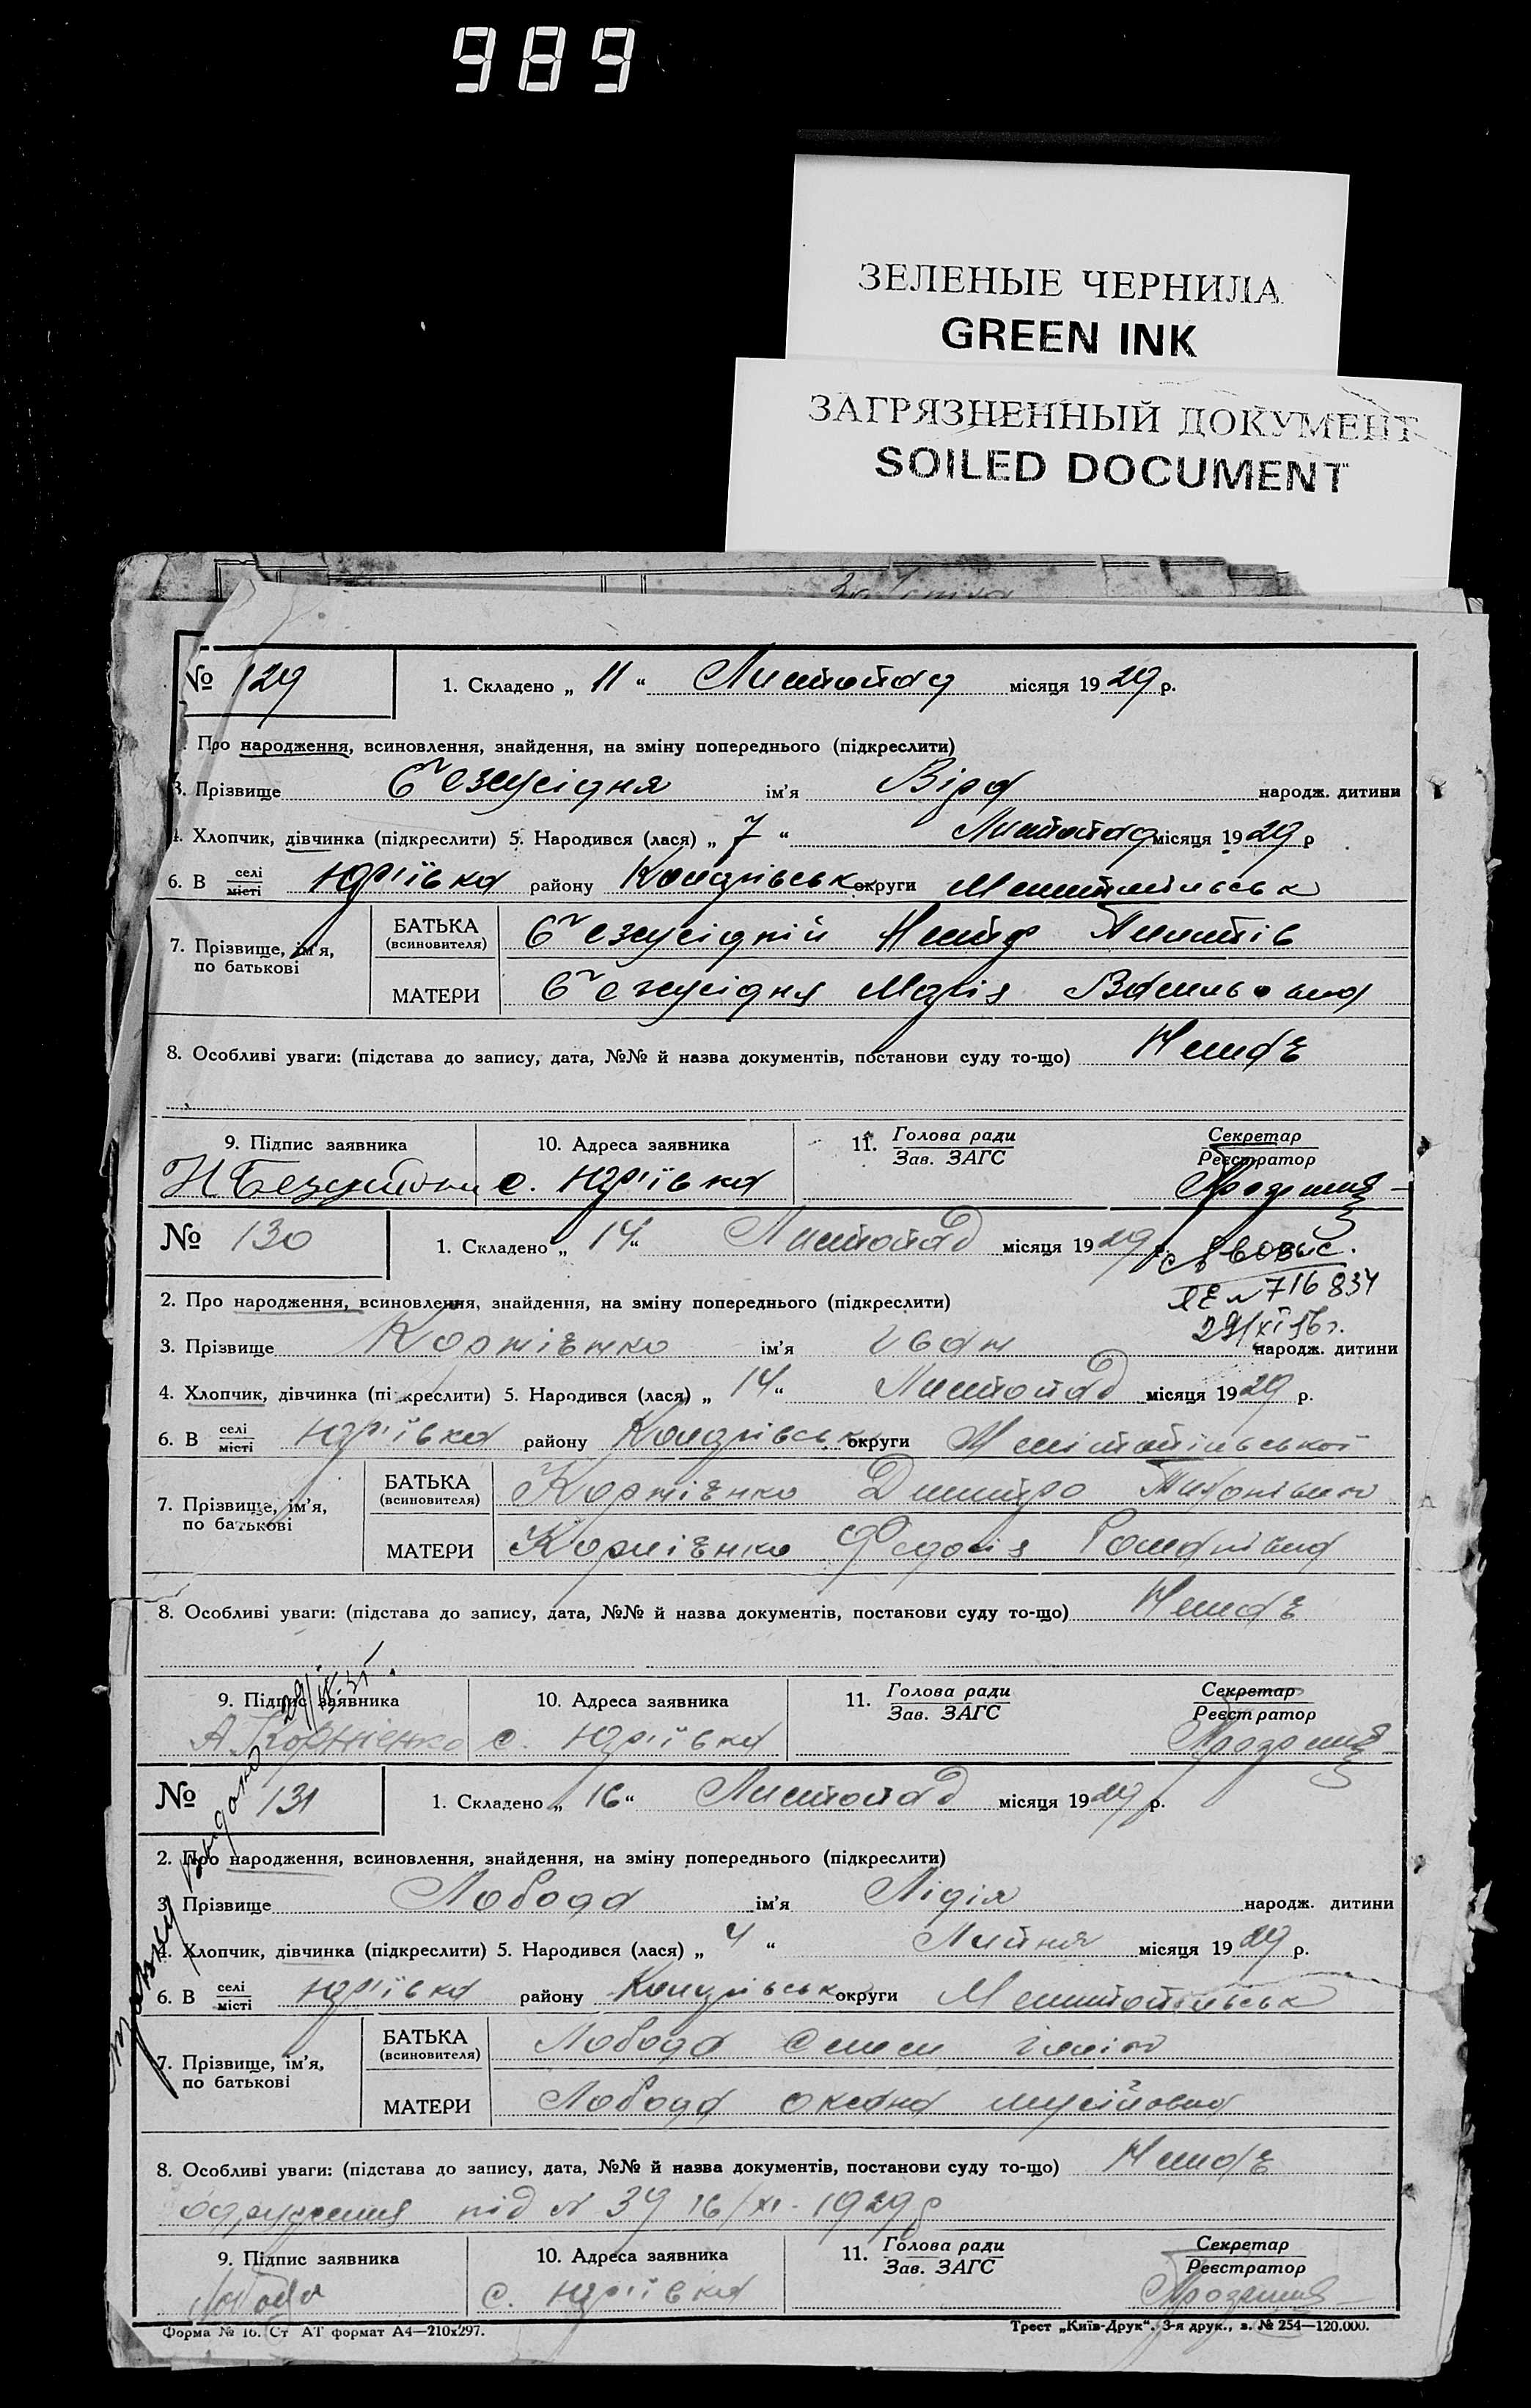 989
ЗЕЛЕНЫЕ ЧЕРНИЛА
GREEN INK
ЗАГРЯЗНЕННЫЙ ДОКУМЕНТ
SOILED DOCUMENT
№ 129 1. Складено „ 11 “ Листопад місяця 1929 р.
Про народження, всиновлення, знайдення, на зміну попереднього (підкреслити)
3. Прізвище ім'я Віра народж. дитини
4. Хлопчик, дівчинка (підкреслити) 5. Народився (лася) „ 7 “ Листопад місяця 1929 р
6. В селі місті Юр'ївка району округи
7. Прізвище, ім'я, по батькові
БАТЬКА (всиновителя)
МАТЕРИ Марія Васильовна
8. Особливі уваги: (підстава до запису, дата, №№ й назва документів, постанови суду то-що) Немає
9. Підпис заявника 10. Адреса заявника 11. Голова ради Зав. ЗАГС Секретар Реєстратор
с. Юр'ївка
№ 130 1. Складено „ 14 “ Листопад місяця 1929 р.
716834
2. Про народження, всиновлення, знайдення, на зміну попереднього (підкреслити)
29/XI 56 г.
3. Прізвище Корнієнко ім'я Іван народж. дитини
4. Хлопчик, дівчинка (підкреслити) 5. Народився (лася) „ 14 “ Листопад місяця 1929 р.
6. В селі місті Юр'ївка району округи Мелітопільської
7. Прізвище, ім'я, по батькові
БАТЬКА (всиновителя) Корнієнко Дмитро
МАТЕРИ Корнієнко Федосія Романівна
8. Особливі уваги: (підстава до запису, дата, №№ й назва документів, постанови суду то-що) Немає
9. Підпис заявника 10. Адреса заявника 11. Голова ради Зав. ЗАГС Секретар Реєстратор
А Корнієнко с. Юр'ївка
№ 131 1. Складено „ 16 “ Листопад місяця 1929 р.
2. Про народження, всиновлення, знайдення, на зміну попереднього (підкреслити)
3. Прізвище Лобода ім'я Лідія народж. дитини
4. Хлопчик, дівчинка (підкреслити) 5. Народився (лася) „ 4 “ Липня місяця 1929 р.
6. В селі місті Юр'ївка району округи Мелитопільськ
7. Прізвище, ім'я, по батькові
БАТЬКА (всиновителя) Лобода Семен
МАТЕРИ Лобода Оксана Мусійовна
8. Особливі уваги: (підстава до запису, дата, №№ й назва документів, постанови суду то-що) Немає
під № 39 16/XI - 1929 р
9. Підпис заявника 10. Адреса заявника 11. Голова ради Зав. ЗАГС Секретар Реєстратор
Лобода с. Юр'ївка
Форма № 16. Ст АТ формат А4—210х297. Трест „Київ-Друк“. 3-я друк., з. № 254—120.000.